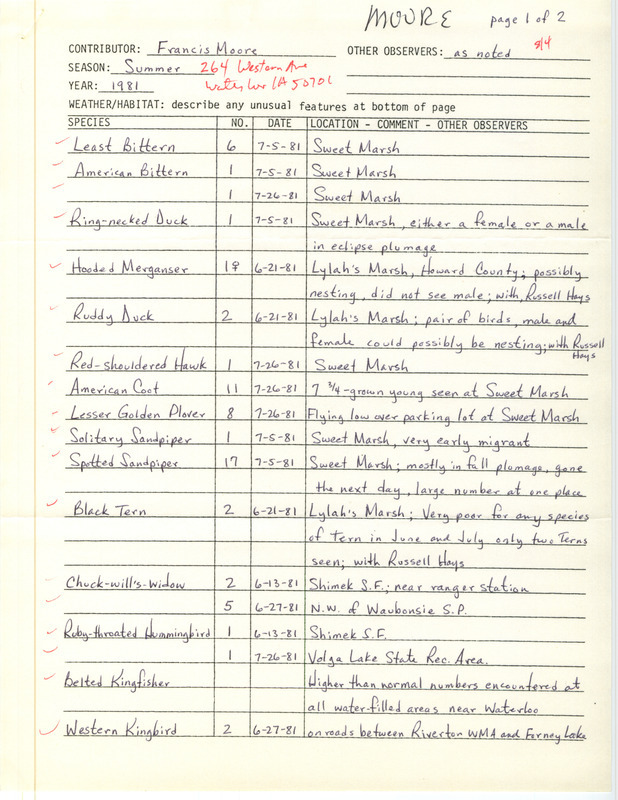 MOORE page 1 of 2
CONTRIBUTOR: Francis Moore OTHER OBSERVERS: as noted 8/4
SEASON: Summer 264 Western Ave
YEAR: 1981 Waterloo IA 50701
WEATHER/HABITAT: describe any unusual features at bottom of page
SPECIES NO. DATE LOCATION - COMMENT - OTHER OBSERVERS
Least Bittern 6 7-5-81 Sweet Marsh
American Bittern 1 7-5-81 Sweet Marsh
1 7-26-81 Sweet Marsh
Ring-necked Duck 1 7-5-81 Sweet Marsh, either a female or a male
in eclipse plumage
Hooded Merganser 1♀ 6-21-81 Lylah's Marsh, Howard County; possibly
nesting, did not see male; with Russell Hays
Ruddy Duck 2 6-21-81 Lylah's Marsh; pair of birds, male and
female could possibly be nesting; with Russell
Hays
Red-shouldered Hawk 1 7-26-81 Sweet Marsh
American Coot 11 7-26-81 7 3/4-grown young seen at Sweet Marsh
Lesser Golden Plover 8 7-26-81 Flying low over parking lot at Sweet Marsh
Solitary Sandpiper 1 7-5-81 Sweet Marsh, very early migrant
Spotted Sandpiper 17 7-5-81 Sweet Marsh; mostly in fall plumage, gone
the next day, large number at one place
Black Tern 2 6-21-81 Lylah's Marsh; Very poor for any species
of tern in June and July only two Terns
seen; with Russell Hays
Chuck-will's-widow 2 6-13-81 Shimek S.F.; near ranger station
5 6-27-81 N.W. of Waubonsie S.P.
Ruby-throated Hummingbird 1 6-13-81 Shimek S.F.
1 7-26-81 Volga Lake State Rec. Area.
Belted Kingfisher Higher than normal numbers encountered at
all water-filled areas near Waterloo
Western Kingbird 2 6-27-81 on roads between Riverton WMA and Forney Lake